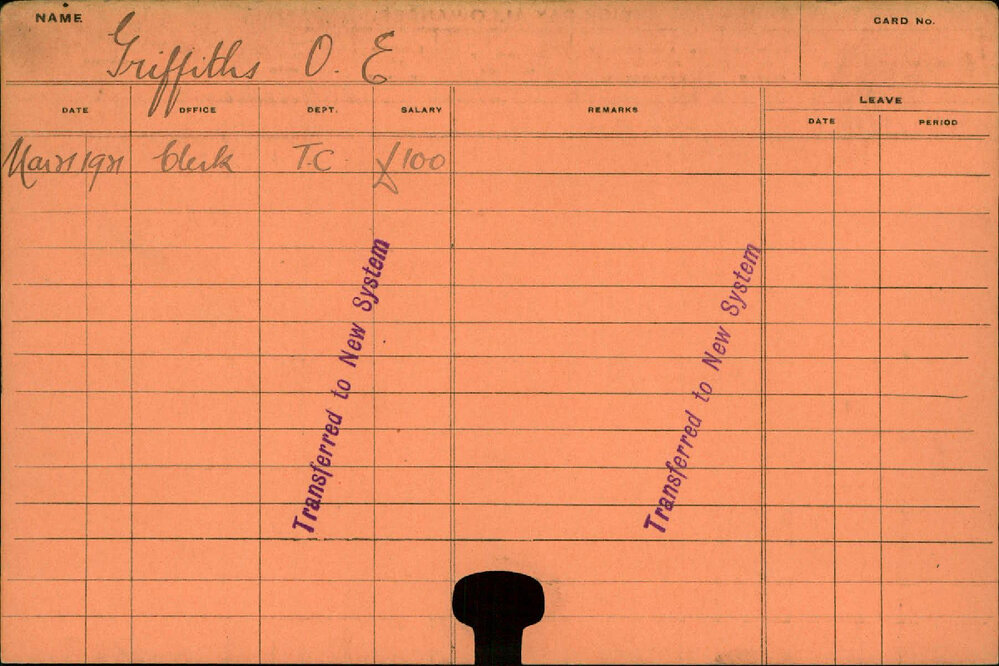 NAME
CARD No.
Griffiths O. E
DATE OFFICE DEPT. SALARY REMARKS LEAVE
DATE PERIOD
1921 Clerk T.C. £100
Transferred to New System
Transferred to New System